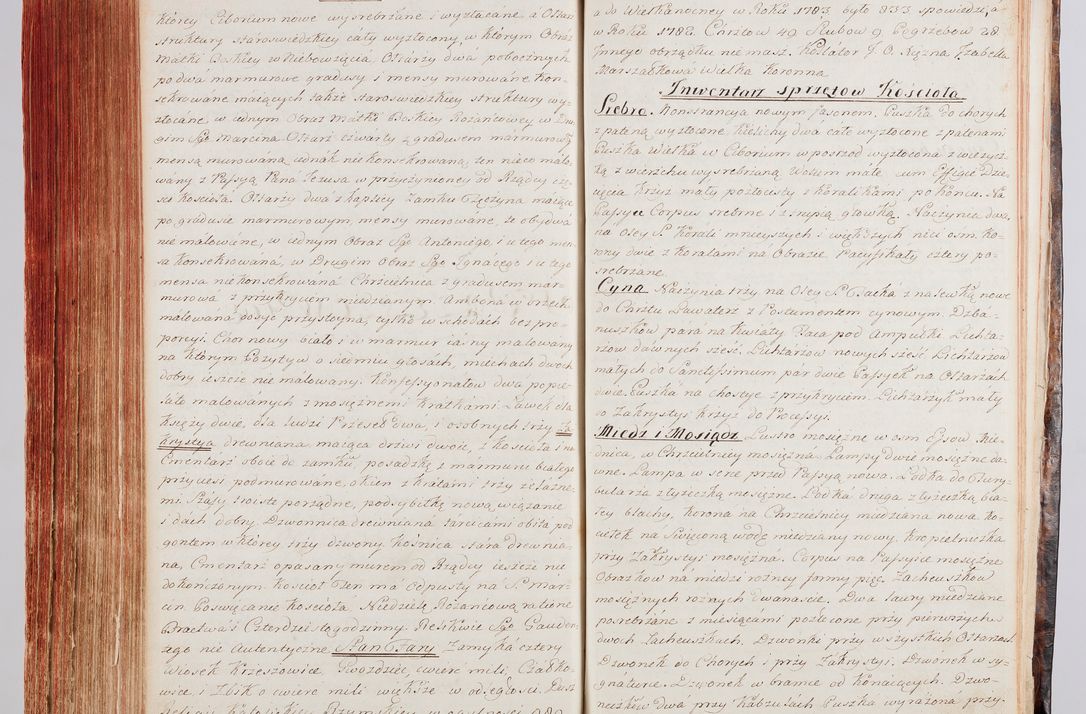 ktorey Ciborium nowe wysrebrzane i wyzłacane, á Ołtarz
struktury staroswiedzkiey cały wyzłocony, w którym Obraz
Matki Boskiey w Niebowzięcia. Ołtarzy dwa pobocznych
po dwa marmurowe gradusy i mensy murowáne kon-
sekrowáne maiących także staroswiedzkiey struktury wy-
złocáne, w iednym Obraz Matki Boskiey Rożańcowey w Dru-
gim Sgo Marcina. Ołtarz czwarty z gradusem marmurowy
mensą murowáną iednak niekonsekrowáną, ten nieco malo-
wány z Passyą Pana Jezusa w przyczynioney od Rządcy czę-
sci kościoła. Ołtarzy dwa z kaplicy Zamku Tęczyna maiące
po gradusie marmurowym, mensy murowáne, te obydwa
nie málowáne, w iednym Obraz Sgo Antoniego, i u tego men-
sa konsekrowáná, w Drugim Obraz Sgo Jgnácego i u tego
mensa nie konsekrowáná Chrzcielnica z gradusem mar-
murowa z przykryciem miedzianym. Ambona w orzech
malowáná dosyć przystoyna, tylko w schodach bez pro-
porcyi. Chor nowy biało i w marmur iasny malowany
na którym Pozytyw o siedmiu głosach, miechach dwoch
dobry ieszcze nie málowany. Konfessyonałow dwa popie-
lato malowanych z mosięznemi Kratkámi. Ławek dla
Księzy dwie, dla ludzi Krzeseł dwa, i osobnych trzy. Za-
krystya drewniana, maiąca drzwi dwoie, z kościoła i na
Cmentarz oboie do zamku, posadzkę z marmuru białego
przyciesi podmurowáne, okien z kratami trzy żelazne-
mi. Szafy troiste porządne, podsybitką nową, wiązanie
i dach dobry. Dzwonnica drewniana tarcicami obita pod
gontem w ktorey trzy dzwony. Kośnica stára drewnia-
na, Cmentarz opasany murem od Rządcy ieszcze nie
dokończonym. Kościoł ten má odpusty na S. Marci-
cin. Poswięcanie kościoła. Niedzielę Rożańcową ratione
Bractwa i Czterdziestogodzinny. Relikwie Sgo Gauden-
zego nie Autentyczne. Stan Fary Zamyka cztery
wiosek Krzeszowice, Gwoździec, cwierć mili, Czatko-
wice, i Zbik o cwierć mili większe w odległości. Dusz
a do Wielkanocney w Roku 1783 było 833 spowiedzi, a
w Roku 1782. Chrztow 49 Slubow 9 Pogrzebow 28
Jnnego obrządku nie masz. Kollator J. O. Xiężna Jzabella
Marszałkowá Wielka Koronna
Jnwentarz sprzętow Kościoła
Srebro. Monstrancya nowym fasonem. Puszka do chorych
z pateną wyzłocone, Kielichy dwa całe wyzłocone z patenami
Puszka Wielka w Ciborium w posrzod wyzłocona z wieżycz-
ką z wierzchu wysrebrzaną. Wotum małe cum Effigie Dzie-
cięcia Krzyz mały pozłocisty z koralikámi po końcu. Na
Passyi Corpus srebrne i z snupią głowką. Naczynia dwa
na Oley S. Korali mnieyszych i większych nici osm. Ko-
rony dwie z koralami na Obrazie. Pacyfikały cztery po-
srebrzane.
Cyna Naczynia trzy na Oley S. Tacka z nalewką nowe
do Chrztu. Lawaterz z Postumentem cynowym. Dzba-
nuszkow para na kwiaty Taca pod Ampułki Lichta-
rzow dawnych sześć. Lichtarzow nowych sześć Lichtarzow
małych do Sanctissimum par dwie Passyek na Ołtarzach
dwie. Puszka na hostye z przykryciem. Lichtarzyk mały
do Zakrystyi krzyż do Processyi.
Miedz i Mosiądz Lustro mosięzne w osm Epsow Mie-
dnica, w Chrzcielnicy mosięzna. Lampy dwie mosięzne da-
wne. Lampa w serie przed Passyą nowa. Łodka do Tury-
bularza z łyżeczką mosięzne. Łodka druga z łyżeczką bia-
łey blachy, Korona na Chrzcielnicy miedziana nowa Ko-
ciełek na Swięconą wodę miedziany nowy. Kropielniczka
przy Zakrystyi mosięzna. Corpus na Passyice mosięzne
Obrazkow na miedzi roźney formy pięć. Zacheuszkow
mosięznych roznych dwanascie. Dwa laury miedziane
posrebrzane z miesiącami pozłocone przy pierwszych
dwoch Zacheuszkach. Dzwonki przy wszystkich Ołtarzach
Dzwonek do Chorych i przy Zakrystyi. Dzwonek w sy-
gnaturze. Dzwonek w bramce od konaiących. Dzwo-
neczkow dwa przy Kabzułach Puszka wyrażona przy